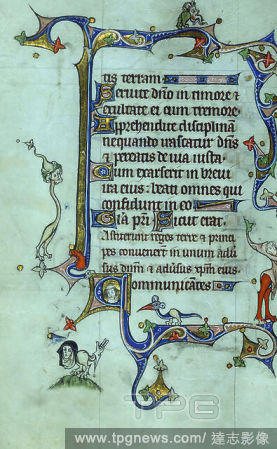 tis terram
Servite dño in timore et
exultate ei cum tremore
Apprehendite disciplinā
nequando irascatur dñs
et pereatis de via iusta
Cum exarserit in brevi
ira eius: beati omnes qui
confidunt in eo
Glā pri Sicut erat.
Astiterunt reges terre et princi
pes convenerunt in unum adūs
sus dnm et adūsus xpm eius.
Communicātes
TPG
www.tpgnews.com/ 達志影像